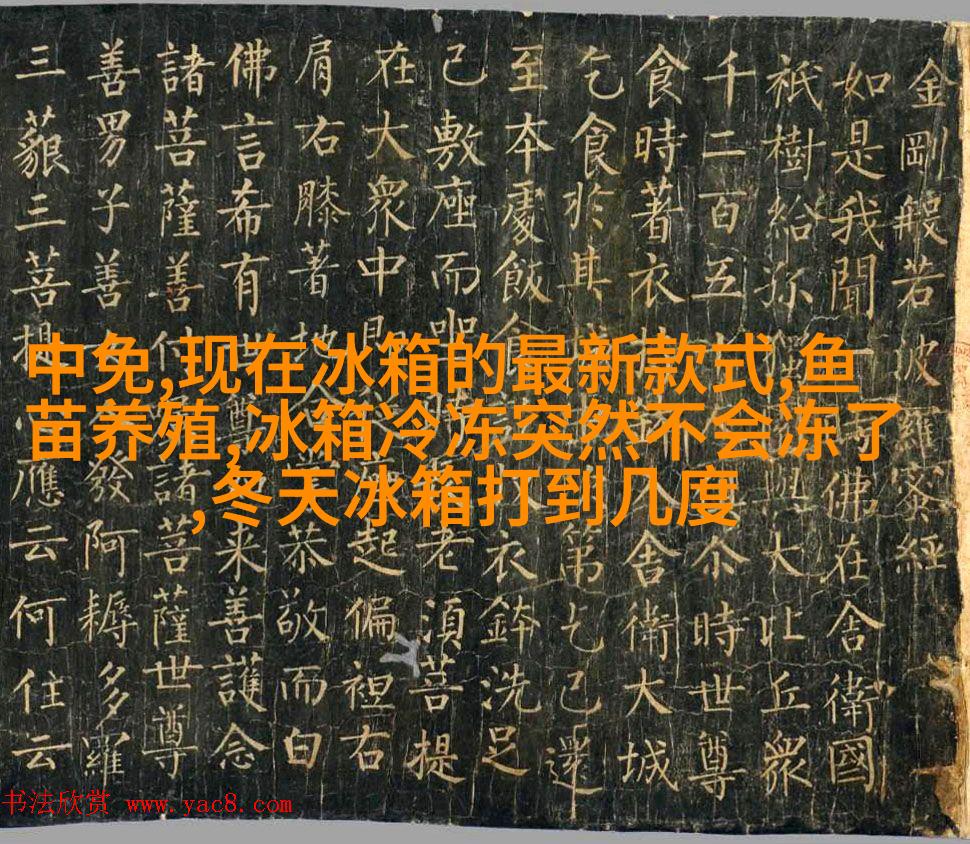 金剛般若波羅蜜經
如是我聞佛在舍衛國
祇樹給孤與大比丘眾
千二百五尒時世尊
食時著衣舍衛大城
乞食於其第乞已還
至本處飯食衣鉢洗足
已敷座而坐老須菩提
在大眾中即起偏袒右
肩右膝著地恭敬而白
佛言希有世尊来善護念
諸菩薩善付諸菩薩世尊
善男子善發阿耨多羅
三藐三菩提應云何住云
中免,现在冰箱的最新款式,鱼
苗养殖,冰箱冷冻突然不会冻了
,冬天冰箱打到几度
书法欣赏 www.yac8.com